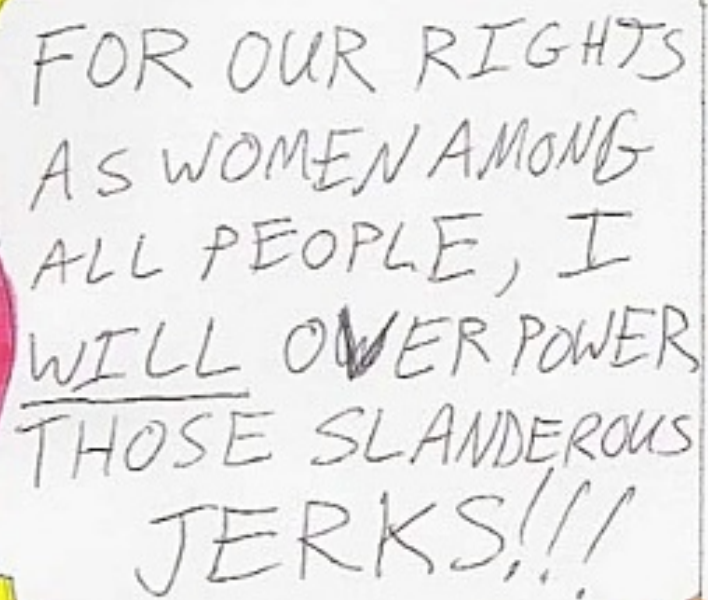 FOR OUR RIGHTS
AS WOMEN AMONG
ALL PEOPLE, I
WILL OVERPOWER
THOSE SLANDEROUS
JERKS!!!